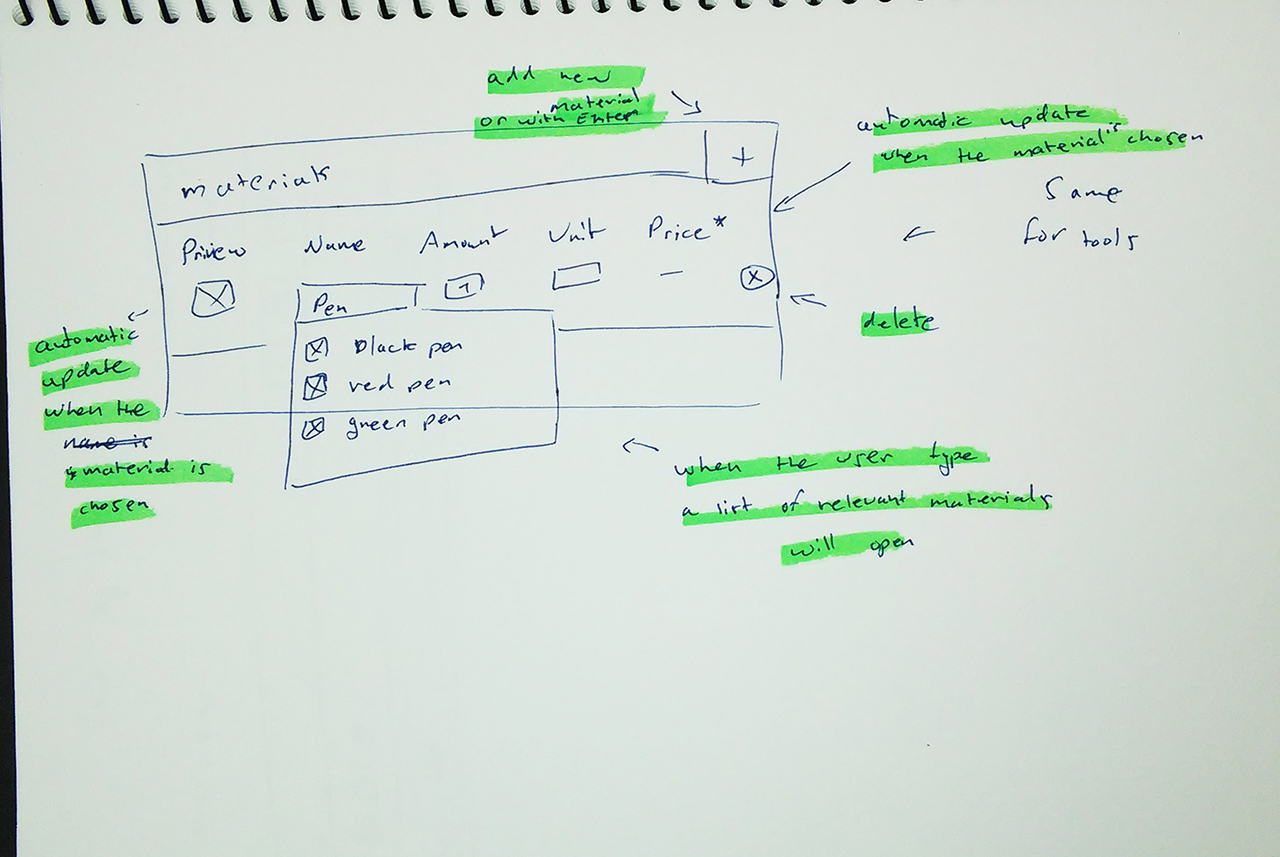 add new
material
or with Enter
automatic update
when the material's chosen
Same
for tools
materials
+
Name Amount Unit Price*
1
Pen
black pen
red pen
green pen
delete
automatic
update
when the
name is
material is
chosen
when the user type
a list of relevant materials
will open